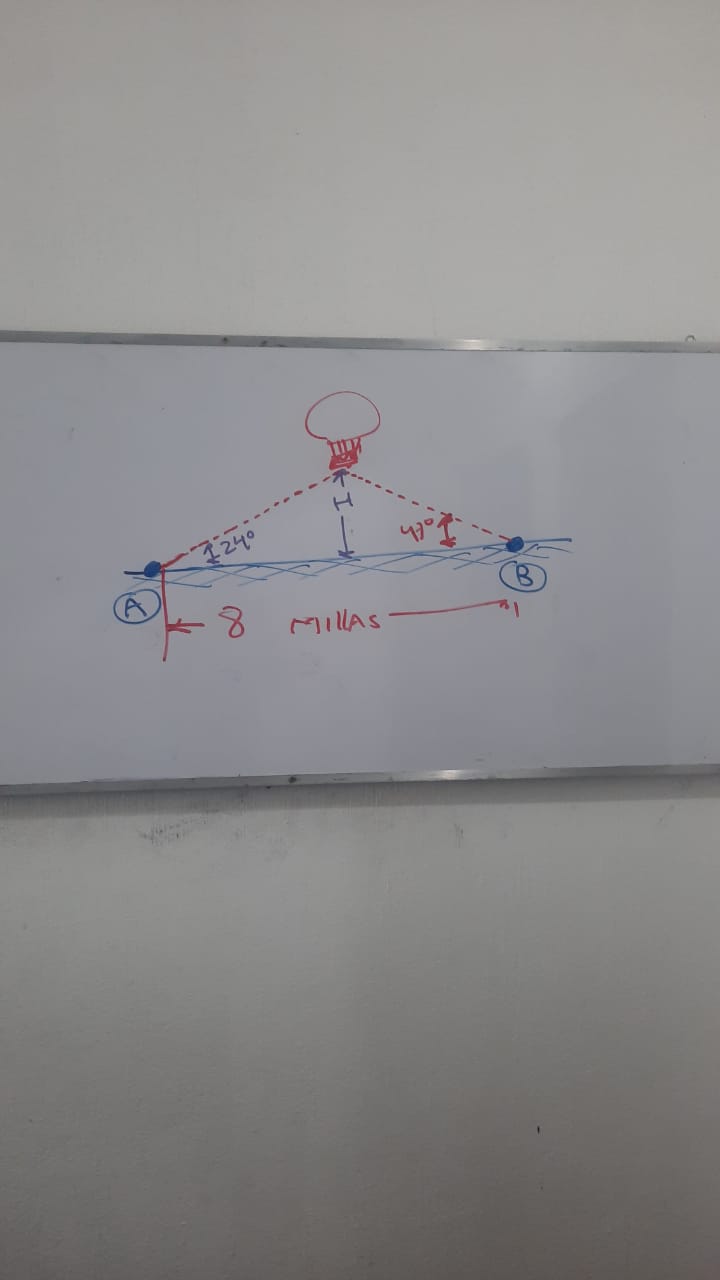 H
24°
47°
A
B
8 MIllAS